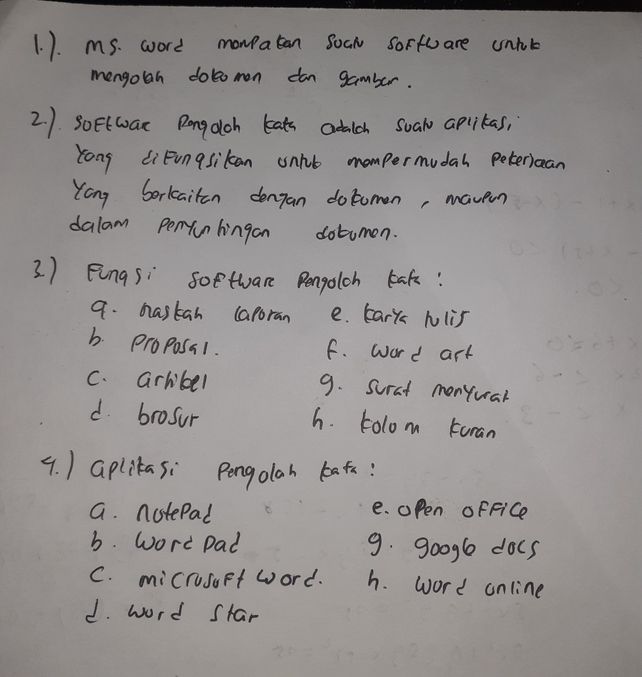 1.). Ms. word monpakan suatu software untuk
mengolah dokumen dan gambar.
2.). software Pengolah kata adalah suatu aplikasi,
Yang difungsikan untuk mempermudah Pekerjaan
Yang berkaitan dengan dokumen, maupun
dalam Penyuntingan dokumen.
3.) Fungsi software Pengolah kata :
a. naskah laporan e. karya tulis
b. Proposal. f. word art
c. artikel g. surat menyurat
d. brosur h. kolom koran
4.) aplikasi Pengolah kata :
a. notepad e. open office
b. word pad g. google docs
c. microsoft word. h. word online
d. word star